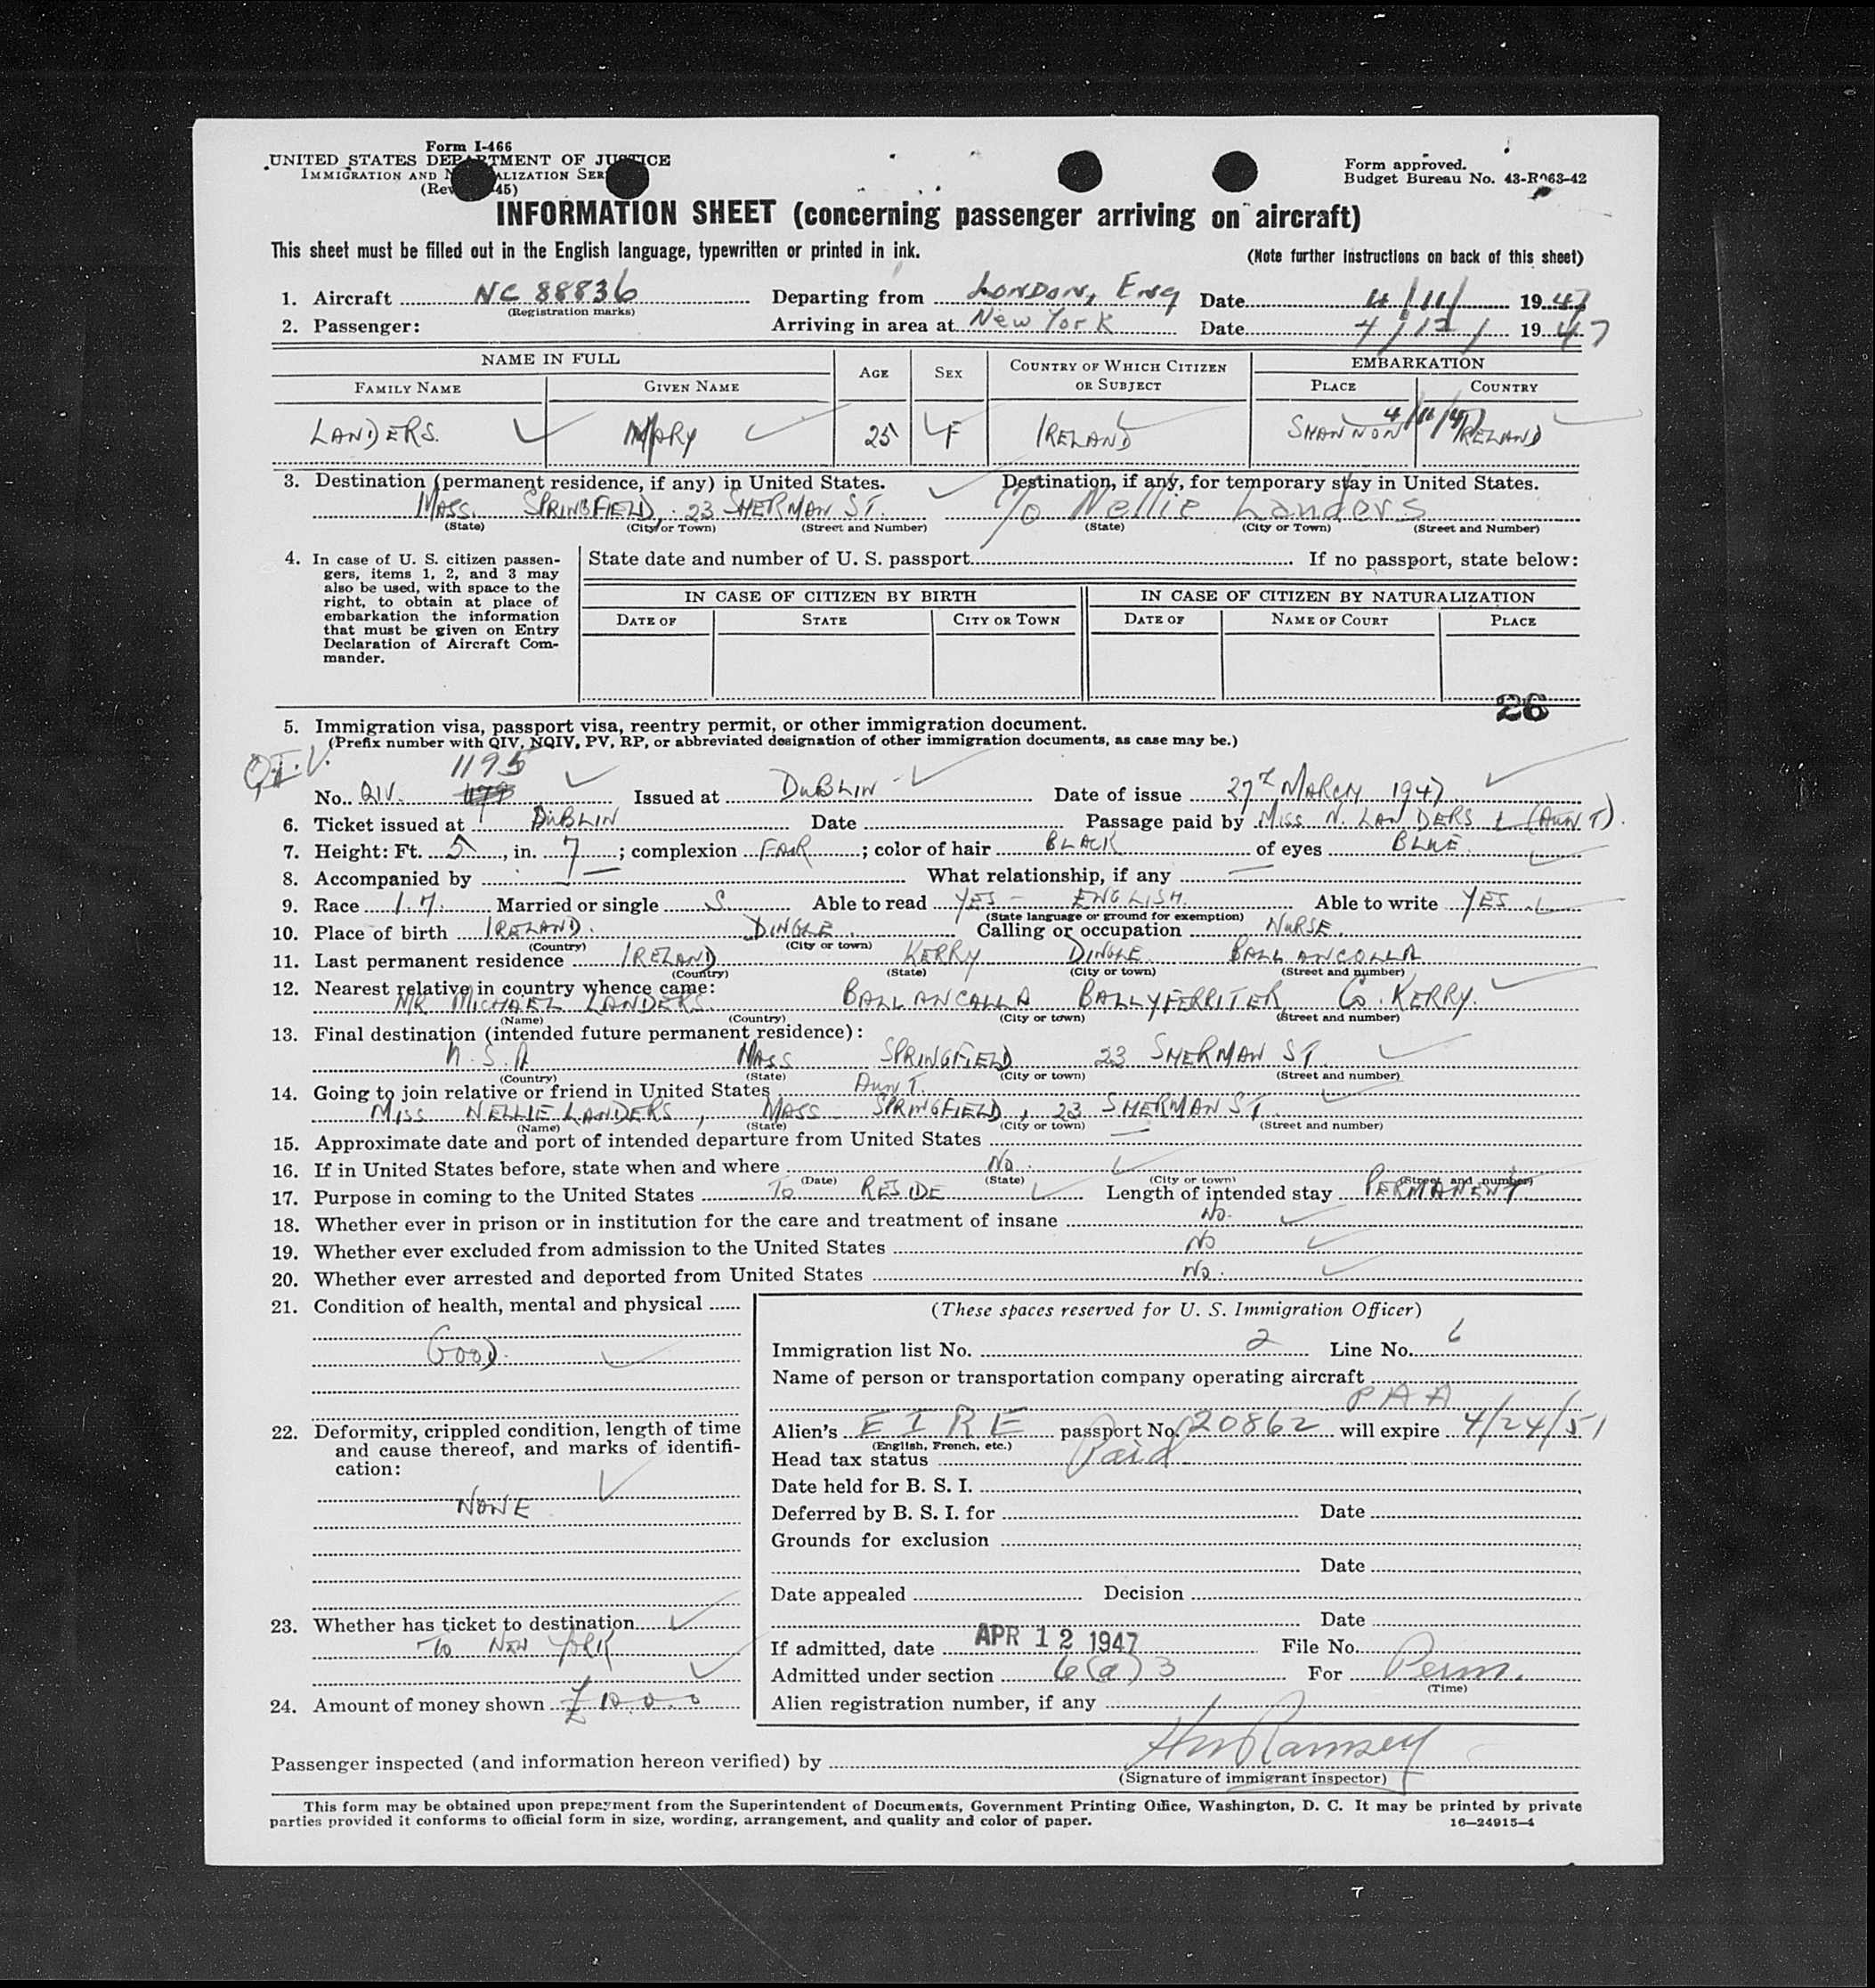 Form I-466
UNITED STATES DEPARTMENT OF JUSTICE
IMMIGRATION AND NATURALIZATION SER
(Rev 45)
Form approved.
Budget Bureau No. 43-R063-42
INFORMATION SHEET (concerning passenger arriving on aircraft)
This sheet must be filled out in the English language, typewritten or printed in ink. (Note further instructions on back of this sheet)
1. Aircraft NC 88836 Departing from LONDON, ENG Date 4/11/ 1947
(Registration marks)
2. Passenger: Arriving in area at New York Date 4/12/ 1947
NAME IN FULL AGE SEX COUNTRY OF WHICH CITIZEN OR SUBJECT EMBARKATION
FAMILY NAME GIVEN NAME PLACE COUNTRY
4/11/47
LANDERS. MARY 25 F IRELAND SHANNON IRELAND
3. Destination (permanent residence, if any) in United States. Destination, if any, for temporary stay in United States.
MASS. SPRINGFIELD, 23 SHERMAN ST. c/o Nellie Landers
(State) (City or Town) (Street and Number) (State) (City or Town) (Street and Number)
4. In case of U. S. citizen passengers, items 1, 2, and 3 may also be used, with space to the right, to obtain at place of embarkation the information that must be given on Entry Declaration of Aircraft Commander.
State date and number of U. S. passport If no passport, state below:
IN CASE OF CITIZEN BY BIRTH IN CASE OF CITIZEN BY NATURALIZATION
DATE OF STATE CITY OR TOWN DATE OF NAME OF COURT PLACE
26
5. Immigration visa, passport visa, reentry permit, or other immigration document.
(Prefix number with QIV, NQIV, PV, RP, or abbreviated designation of other immigration documents, as case may be.)
Q.I.V. 1195
No. QIV. Issued at DUBLIN Date of issue 27 MARCH 1947
6. Ticket issued at DUBLIN Date Passage paid by MISS N. LANDERS (AUNT).
7. Height: Ft. 5, in. 7; complexion FAIR; color of hair BLACK of eyes BLUE.
8. Accompanied by — What relationship, if any —
9. Race Married or single S. Able to read YES - ENGLISH. Able to write YES
(State language or ground for exemption)
10. Place of birth IRELAND. DINGLE. Calling or occupation NURSE.
(Country) (City or town)
11. Last permanent residence IRELAND KERRY DINGLE BALLANCOLLA
(Country) (State) (City or town) (Street and number)
12. Nearest relative in country whence came:
MR MICHAEL LANDERS. BALLANCALLA BALLYFERRITER Co. KERRY.
(Name) (Country) (City or town) (Street and number)
13. Final destination (intended future permanent residence):
U.S.A MASS SPRINGFIELD 23 SHERMAN ST
(Country) (State) (City or town) (Street and number)
14. Going to join relative or friend in United States AUNT.
MISS NELLIE LANDERS, MASS SPRINGFIELD, 23 SHERMAN ST.
(Name) (State) (City or town) (Street and number)
15. Approximate date and port of intended departure from United States —
16. If in United States before, state when and where No.
(Date) (State) (City or town) (Street and number)
17. Purpose in coming to the United States TO RESIDE Length of intended stay PERMANENT.
18. Whether ever in prison or in institution for the care and treatment of insane No.
19. Whether ever excluded from admission to the United States No
20. Whether ever arrested and deported from United States No.
21. Condition of health, mental and physical
GOOD.
22. Deformity, crippled condition, length of time and cause thereof, and marks of identification:
NONE
23. Whether has ticket to destination
TO NEW YORK
24. Amount of money shown £ 10.0.0
(These spaces reserved for U. S. Immigration Officer)
Immigration list No. 2 Line No. 6
Name of person or transportation company operating aircraft
PAA
Alien's EIRE passport No. 20862 will expire 4/24/51
(English, French, etc.)
Head tax status Paid
Date held for B. S. I.
Deferred by B. S. I. for Date
Grounds for exclusion
Date
Date appealed Decision
Date
If admitted, date APR 12 1947 File No.
Admitted under section 6(a)3 For Perm.
(Time)
Alien registration number, if any
Passenger inspected (and information hereon verified) by Ramsey
(Signature of immigrant inspector)
This form may be obtained upon prepayment from the Superintendent of Documents, Government Printing Office, Washington, D. C. It may be printed by private
parties provided it conforms to official form in size, wording, arrangement, and quality and color of paper. 16—24915-4